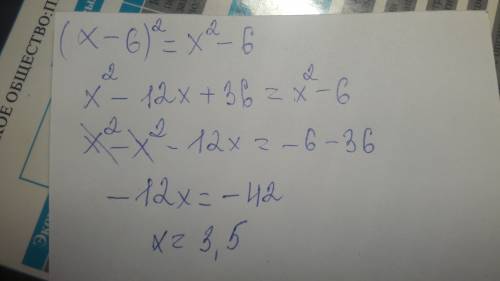 КОЕ ОБЩЕСТВО:П
(x-6)² = x²-6
x² - 12x + 36 = x² - 6
x² - x² - 12x = -6 - 36
-12x = -42
x = 3,5